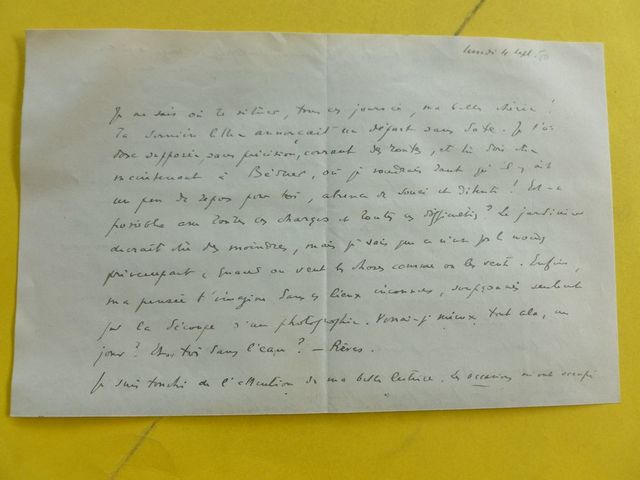 lundi 4 sept. 50
Je ne sais où te situer, tous ces jours-ci, ma belle chérie !
Ta dernière lettre annonçait un départ sans date. Je t'ai
donc supposée sans précision, courant des routes, et tu dois être
maintenant à où je voudrais tant qu'il y ait
un peu de repos pour toi, absence de souci et détente ! Est-ce
possible avec toutes ces charges et toutes ces difficultés ? Le jardinier
devrait être des moindres, mais je sais que ce n'est pas le moins
préoccupant, quand on veut les choses comme on les veut. Enfin,
ma pensée t'imagine dans ces lieux inconnus, soupçonnés seulement
par la d'un photographe. Verrai-je mieux tout cela, un
jour ? toi dans l'eau ? — Rêves.
Je suis touché de l'attention de ma belle lectrice. Les occasions m'ont occupé